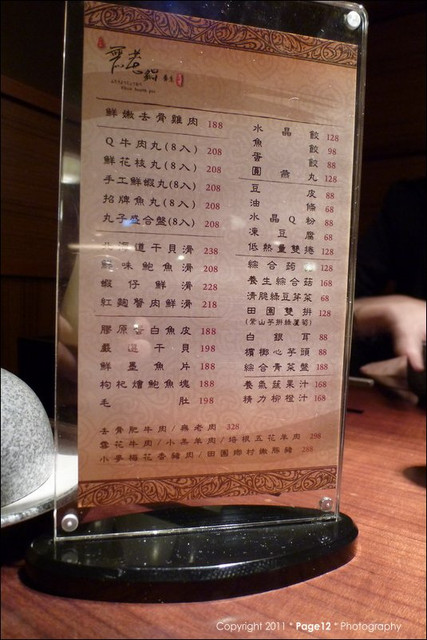 鮮嫩去骨雞肉 188
Q牛肉丸(8入) 208
鮮花枝丸(8入) 208
手工鮮蝦丸(8入) 208
招牌魚丸(8入) 208
丸子盛合盤(8入) 208
道干貝滑 238
味鮑魚滑 208
蝦仔鮮滑 228
紅麴蟹肉鮮滑 218
膠原蛋白魚皮 188
道干貝 198
鮮墨魚片 188
枸杞燴鮑魚塊 188
毛肚 198
水晶餃 128
魚餃 98
蛋餃 88
圓燕丸 128
豆皮 88
油條 68
水晶Q粉 88
凍豆腐 68
低熱量雙捲 128
綜合菇 128
養生綜合菇 168
清脆綠豆芽菜 68
田園雙拼 128
(紫山芋拼綠蘆筍)
白銀耳 88
檳榔心芋頭 88
綜合青菜盤 188
養氣蔬果汁 168
精力柳橙汁 168
去骨肥牛肉/無老肉 328
雪花牛肉/小羔羊肉/培根五花羊肉 298
小麥梅花香豬肉/田園鄉村嫩豚豬 298
Copyright 2011 * Page12 * Photography